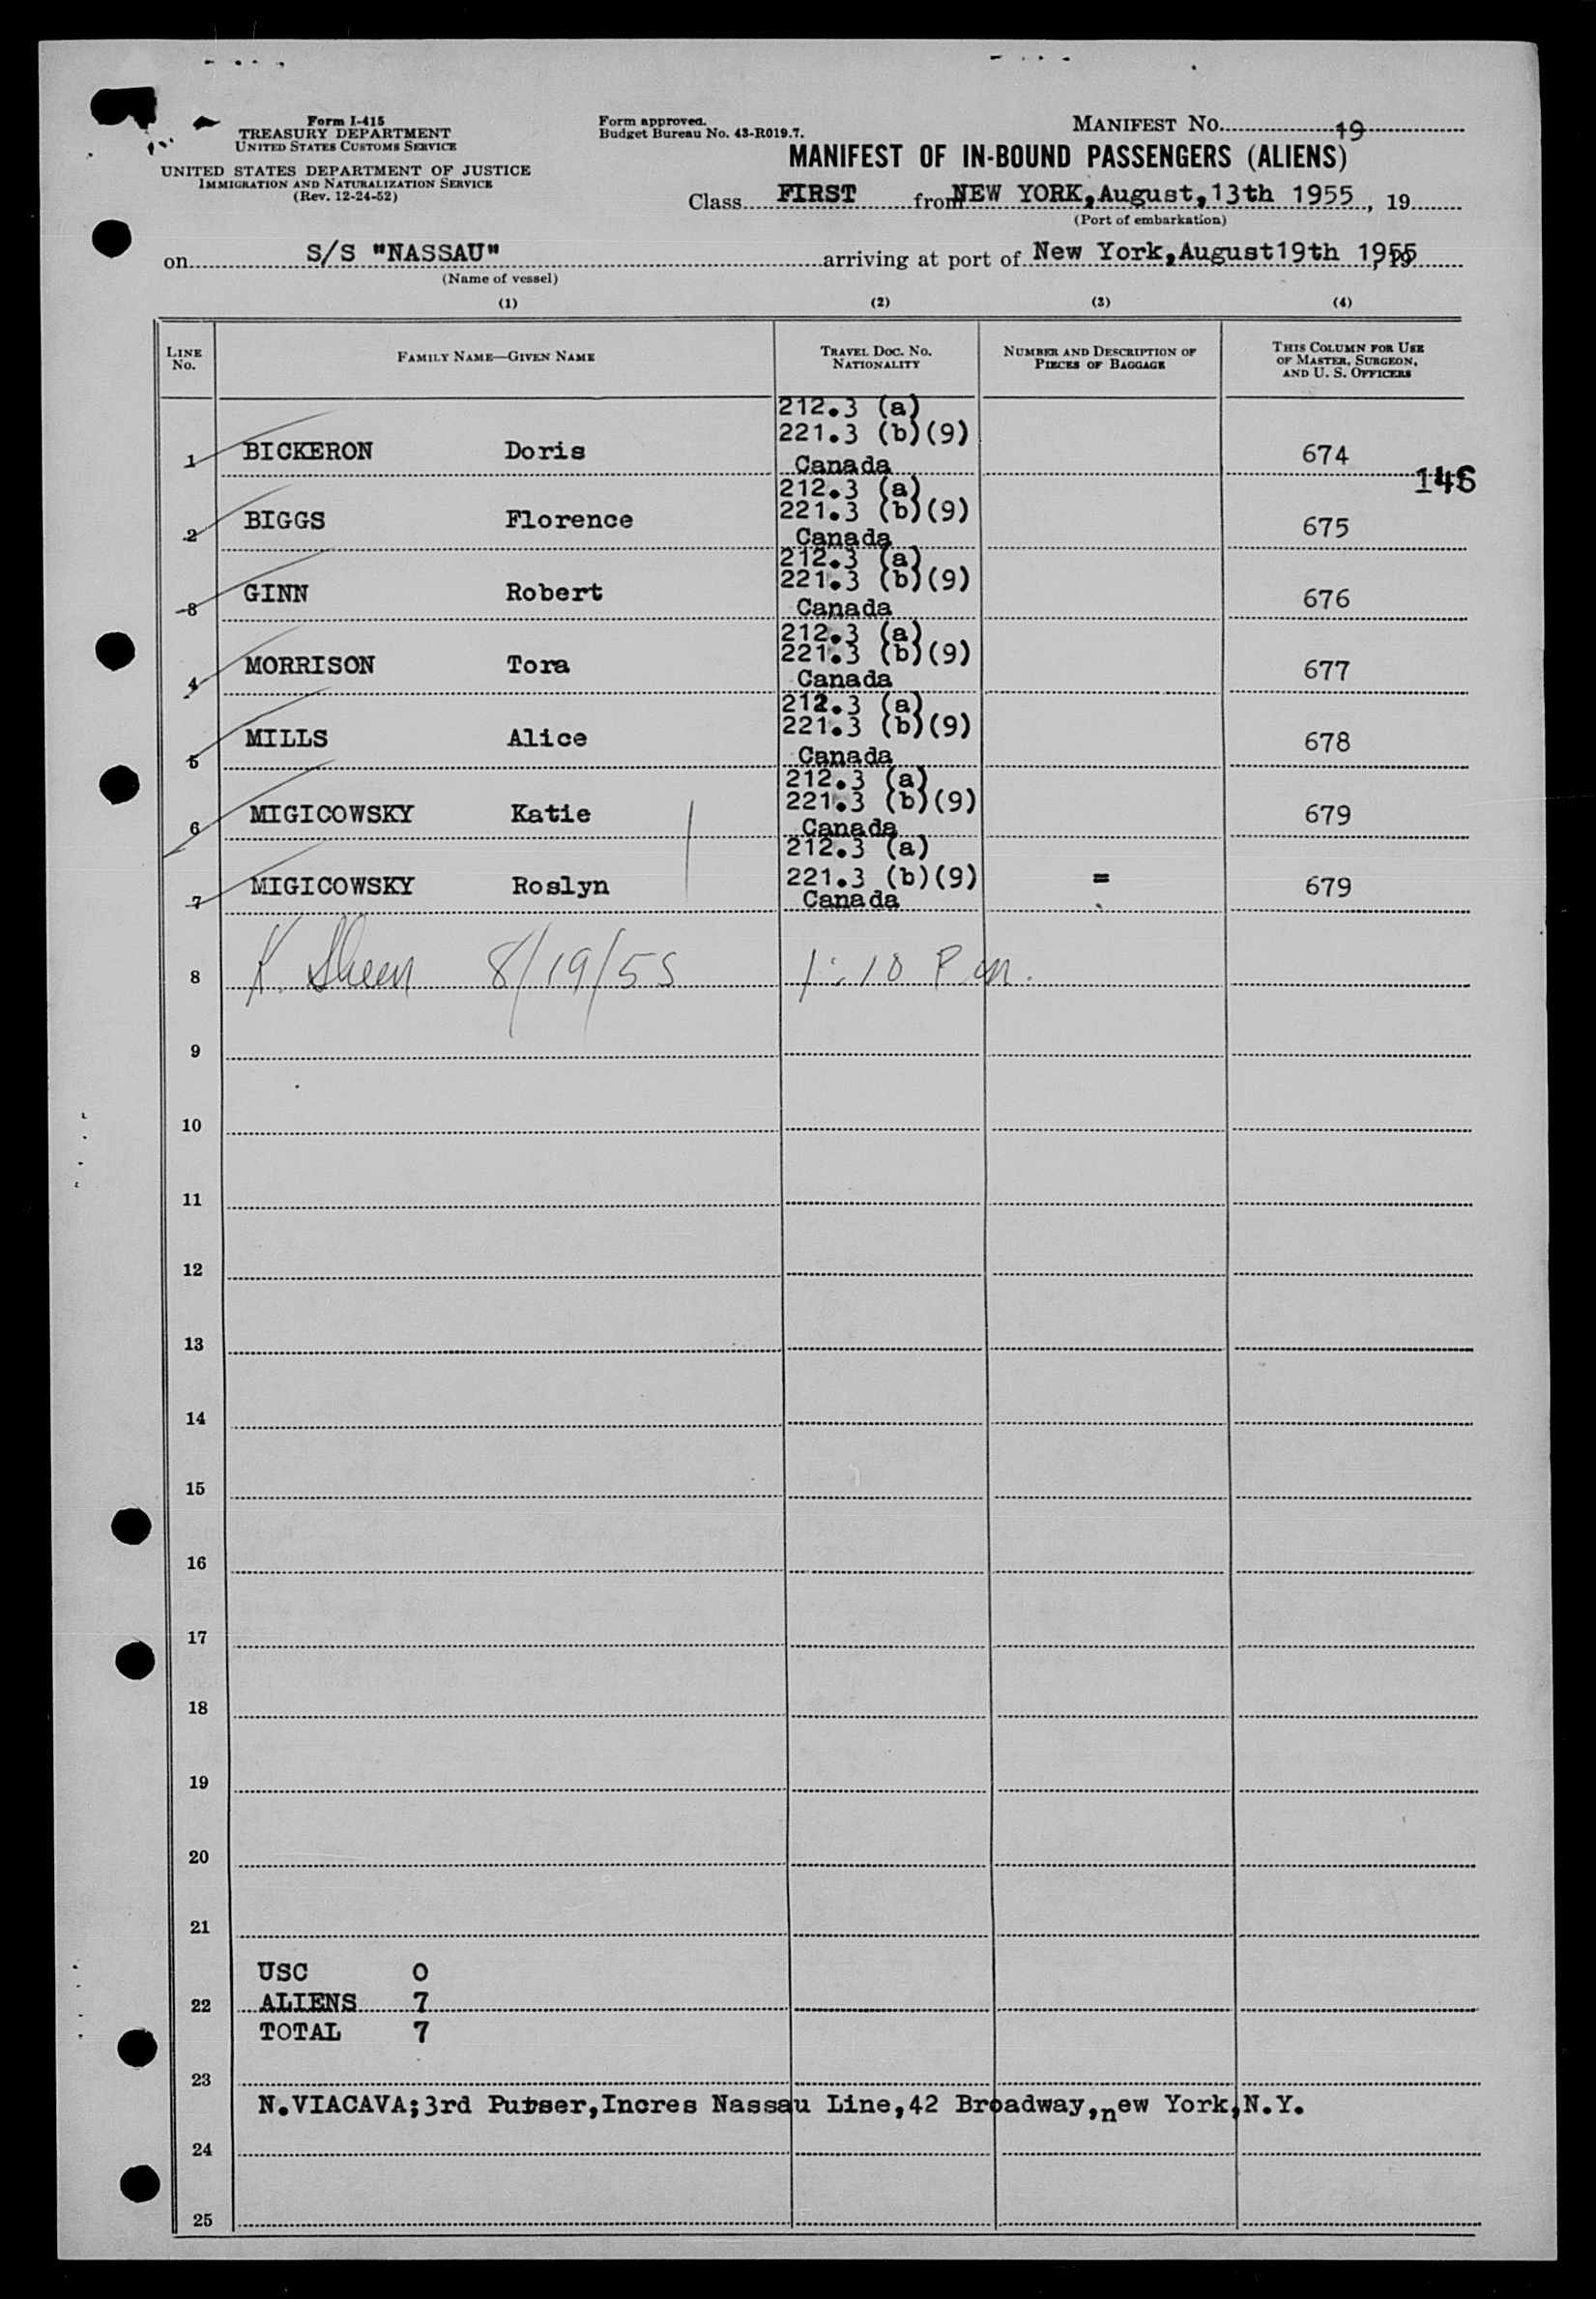 Form I-415
TREASURY DEPARTMENT
UNITED STATES CUSTOMS SERVICE
UNITED STATES DEPARTMENT OF JUSTICE
IMMIGRATION AND NATURALIZATION SERVICE
(Rev. 12-24-52)
Form approved.
Budget Bureau No. 43-R019.7.
MANIFEST NO. 19
MANIFEST OF IN-BOUND PASSENGERS (ALIENS)
Class FIRST from NEW YORK, August, 13th 1955, 19
(Port of embarkation)
on S/S "NASSAU" arriving at port of New York, August 19th 1955
(Name of vessel)
(1) (2) (3) (4)
LINE NO. FAMILY NAME—GIVEN NAME TRAVEL DOC. NO. NATIONALITY NUMBER AND DESCRIPTION OF PIECES OF BAGGAGE THIS COLUMN FOR USE OF MASTER, SURGEON, AND U. S. OFFICERS
212.3 (a)
221.3 (b)(9)
1 BICKERON Doris Canada 674
146
212.3 (a)
221.3 (b)(9)
2 BIGGS Florence Canada 675
212.3 (a)
221.3 (b)(9)
3 GINN Robert Canada 676
212.3 (a)
221.3 (b)(9)
4 MORRISON Tora Canada 677
212.3 (a)
221.3 (b)(9)
5 MILLS Alice Canada 678
212.3 (a)
221.3 (b)(9)
6 MIGICOWSKY Katie Canada 679
212.3 (a)
221.3 (b)(9)
7 MIGICOWSKY Roslyn Canada = 679
8 K. Sheen 8/19/55 1:10 P.m.
9
10
11
12
13
14
15
16
17
18
19
20
21
USC 0
22 ALIENS 7
TOTAL 7
23
N.VIACAVA;3rd Purser,Incres Nassau Line,42 Broadway,new York,N.Y.
24
25